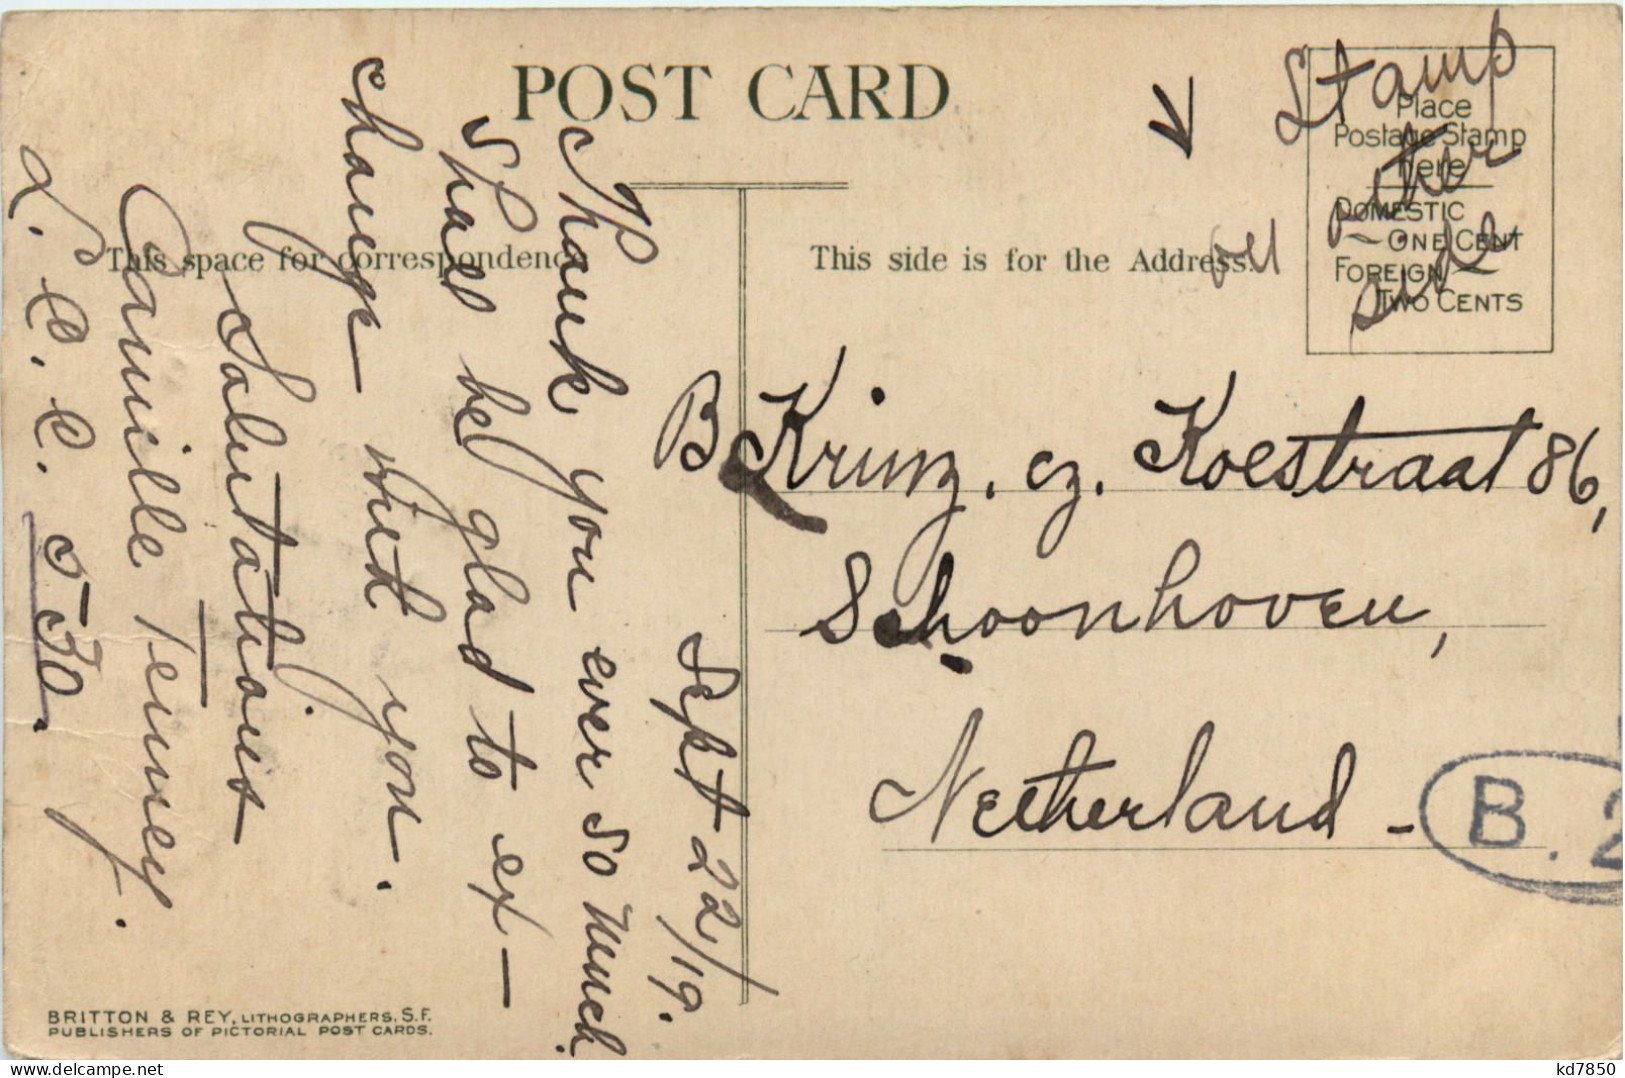 POST CARD
Stamp
on other
side
Place
Postage Stamp
here
DOMESTIC
ONE CENT
FOREIGN
TWO CENTS
This space for correspondence
This side is for the Address.
Sept 22/19.
Thank you ever so much
Shall be glad to ex-
change with you.
Salutations
Camille Tenney.
L. C. C. 530.
B Krinz. cz. Koestraat 86,
Schoonhoven,
Netherland -
B. 2
BRITTON & REY, LITHOGRAPHERS, S.F.
PUBLISHERS OF PICTORIAL POST CARDS.
kd7850